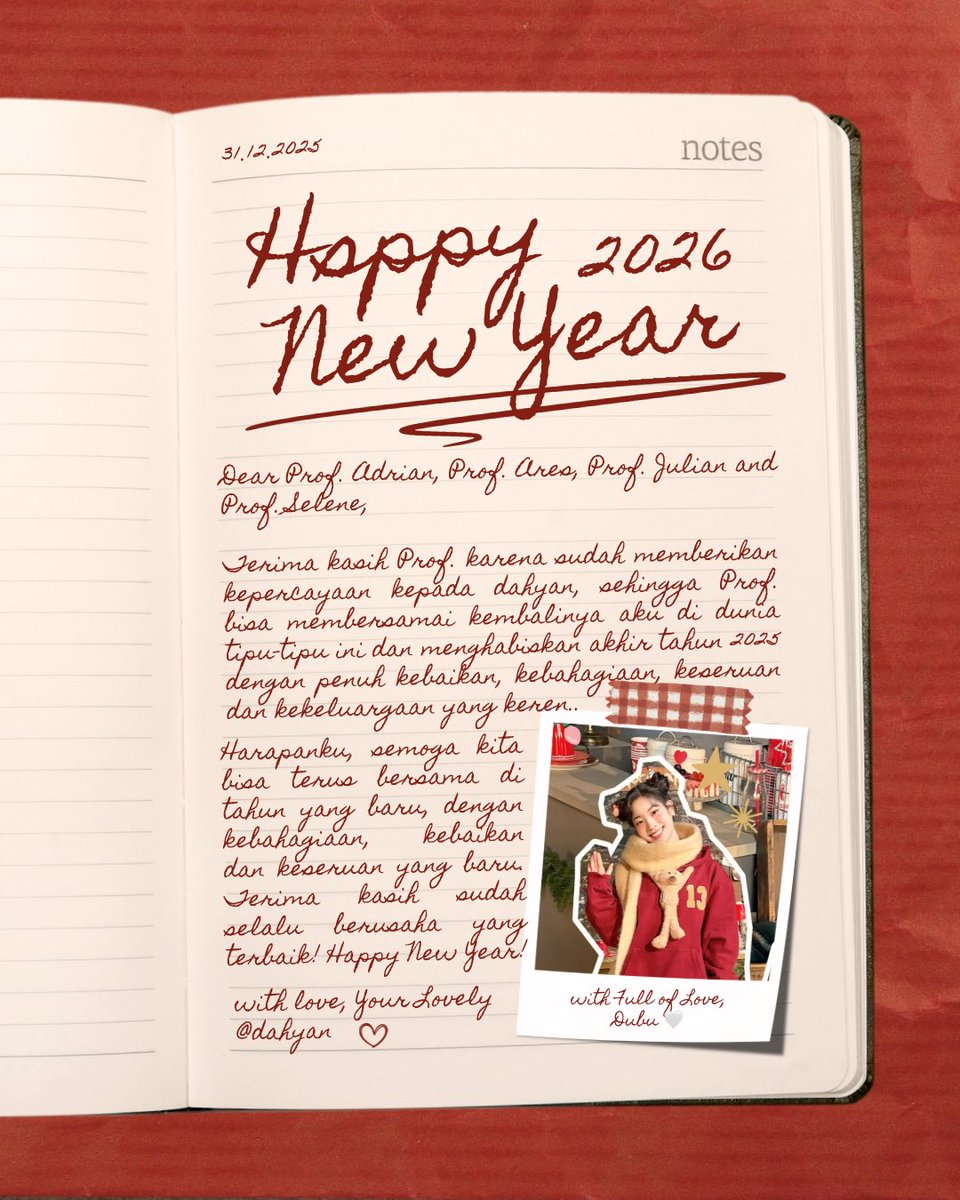 31.12.2025
notes
Happy 2026
New Year
Dear Prof. Adrian, Prof. Ares, Prof. Julian and
Prof.Selene,
Terima kasih Prof. karena sudah memberikan
kepercayaan kepada dahyan, sehingga Prof.
bisa membersamai kembalinya aku di dunia
tipu-tipu ini dan menghabiskan akhir tahun 2025
dengan penuh kebaikan, kebahagiaan, keseruan
dan kekeluargaan yang keren..
Harapanku, semoga kita
bisa terus bersama di
tahun yang baru, dengan
kebahagiaan, kebaikan
dan keseruan yang baru.
Terima kasih sudah
selalu berusaha yang
terbaik! Happy New Year!
with love, Your Lovely
@dahyan
13
with Full of Love,
Dubu 🤍